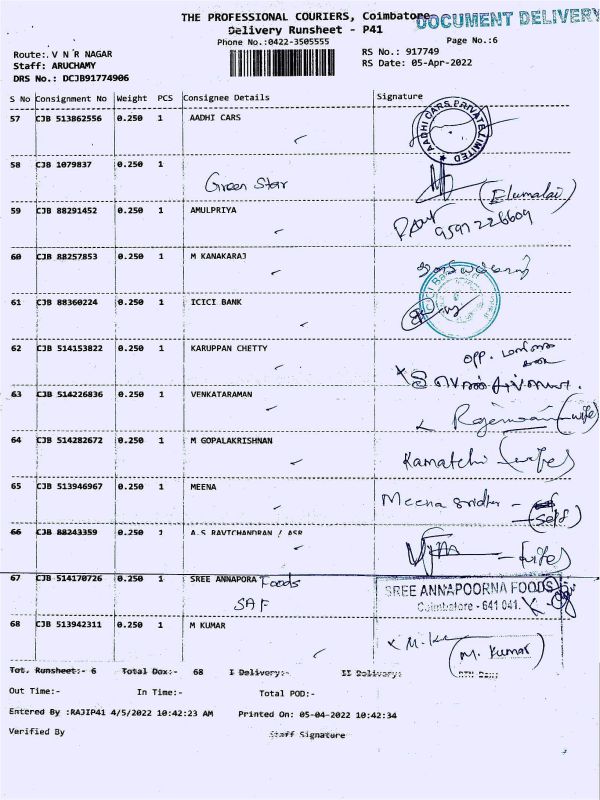 THE PROFESSIONAL COURIERS, Coimbatore
DOCUMENT DELIVERY
Delivery Runsheet - P41
Phone No.:0422-3505555
Page No.:6
Route:.V N R NAGAR
RS No.: 917749
Staff: ARUCHAMY
RS Date: 05-Apr-2022
DRS No.: DCJB91774906
S No Consignment No Weight PCS Consignee Details Signature
57 CJB 513862556 0.250 1 AADHI CARS
AADHI CARS PRIVATE LIMITED
58 CJB 1079837 0.250 1
Green Star
(Elumalai)
59 CJB 88291452 0.250 1 AMULPRIYA
9597226609
60 CJB 88257853 0.250 1 M KANAKARAJ
61 CJB 88360224 0.250 1 ICICI BANK
62 CJB 514153822 0.250 1 KARUPPAN CHETTY
opp.
63 CJB 514226836 0.250 1 VENKATARAMAN
(wife)
64 CJB 514282672 0.250 1 M GOPALAKRISHNAN
Kamatchi (wife)
65 CJB 513946967 0.250 1 MEENA
Meena Sridhar -
(Self)
66 CJB 88243359 0.250 1 A.S RAVICHANDRAN / ASR
- (wife)
67 CJB 514170726 0.250 1 SREE ANNAPORA Foods
SAF
SREE ANNAPOORNA FOODS
Coimbatore - 641 041.
68 CJB 513942311 0.250 1 M KUMAR
(M. Kumar)
Tot. Runsheet:- 6 Total Dox:- 68 I Delivery:- II Delivery:- RTN Dox:
Out Time:- In Time:- Total POD:-
Entered By :RAJIP41 4/5/2022 10:42:23 AM Printed On: 05-04-2022 10:42:34
Verified By Staff Signature